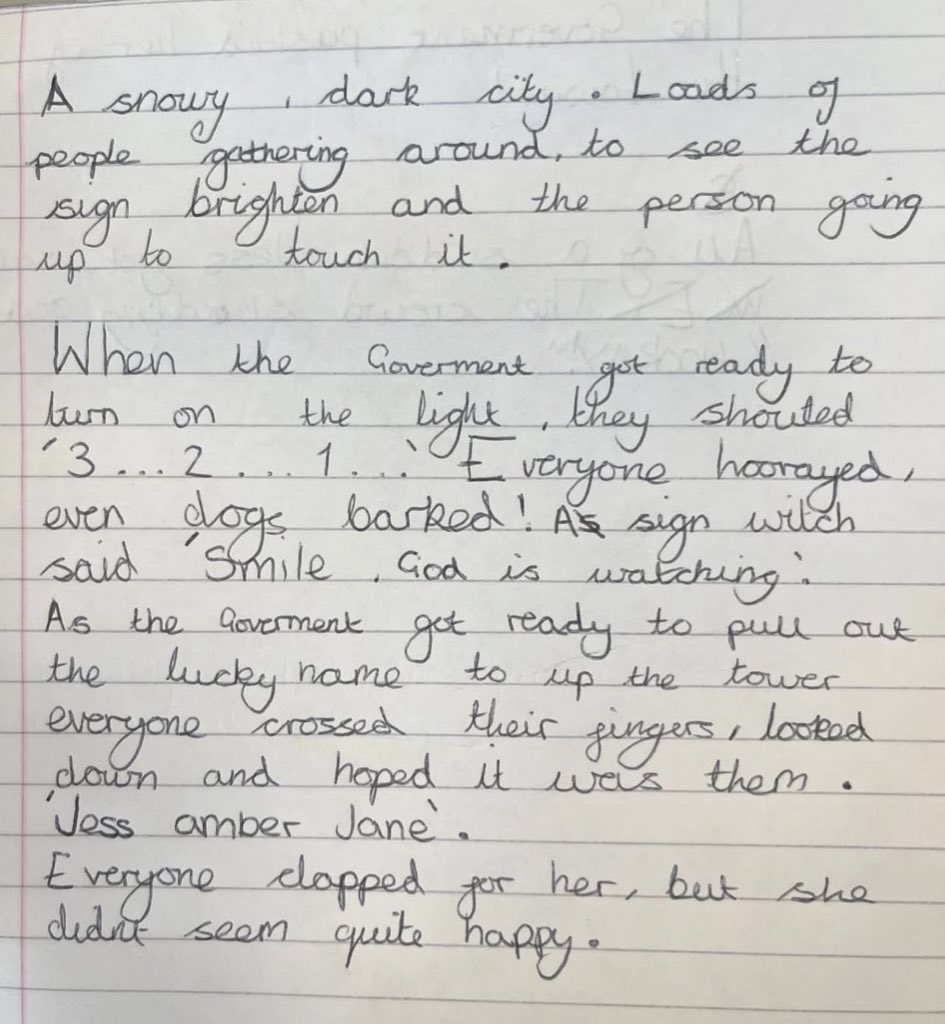 A snowy, dark city. Loads of
people gathering around, to see the
sign brighten and the person going
up to touch it.
When the Goverment got ready to
turn on the light, they shouted
'3...2....1...' Everyone hoorayed,
even dogs barked! As sign witch
said 'Smile, God is watching'.
As the Goverment got ready to pull out
the lucky name to up the tower
everyone crossed their fingers, looked
down and hoped it was them.
'Jess amber Jane'.
Everyone clapped for her, but she
didnt seem quite happy.